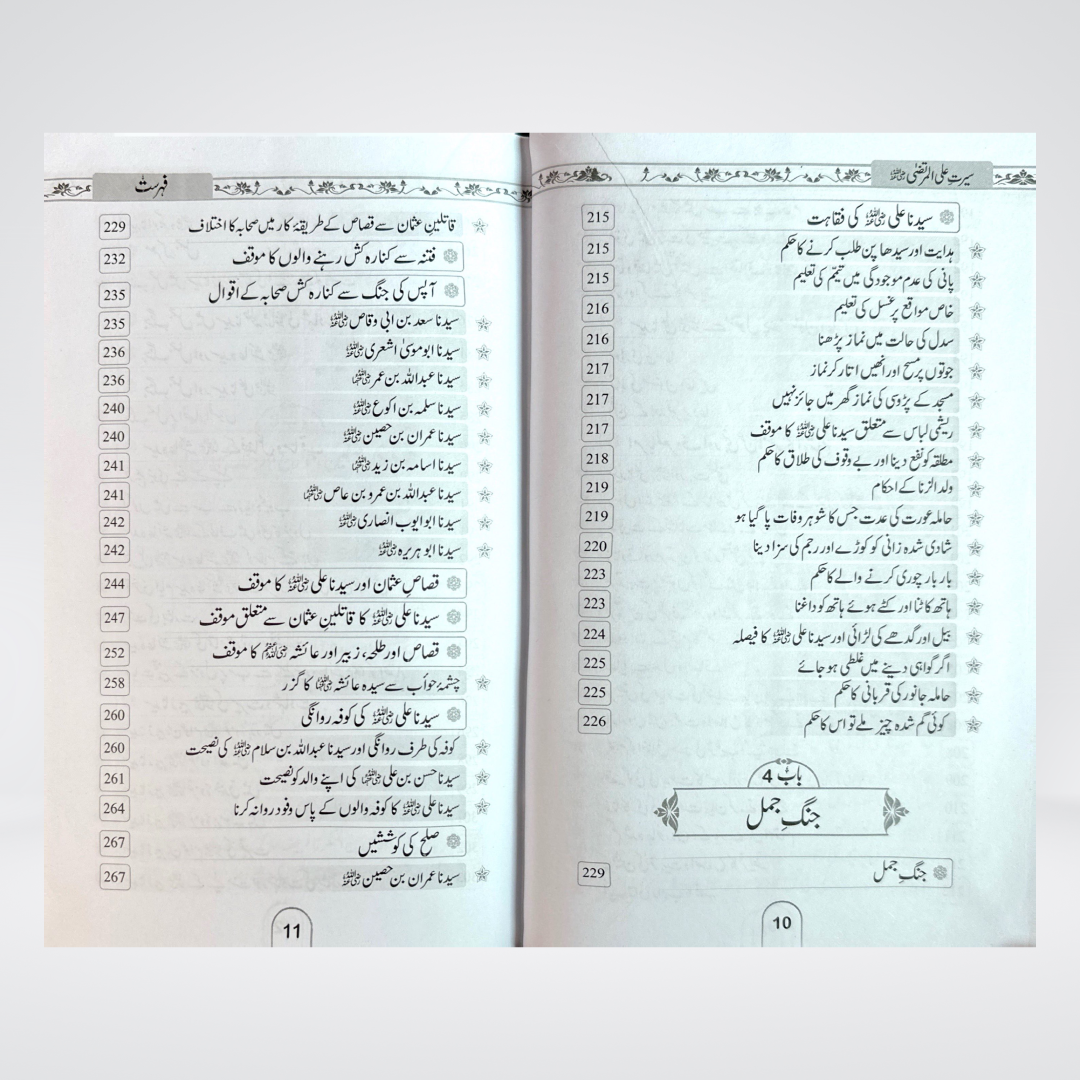 سیرتِ علی المرتضیٰ رضی اللہ عنہ
سیدنا علی رضی اللہ عنہ کی فقاہت 215
ہدایت اور سیدھا پن طلب کرنے کا حکم 215
پانی کی عدم موجودگی میں تیمّم کی تعلیم 215
خاص مواقع پر غسل کی تعلیم 216
سدل کی حالت میں نماز پڑھنا 216
جوتوں پر مسح اور انھیں اتار کر نماز 217
مسجد کے پڑوسی کی نماز گھر میں جائز نہیں 217
ریشمی لباس سے متعلق سیدنا علی رضی اللہ عنہ کا موقف 217
مطلقہ کو نفع دینا اور بے وقوف کی طلاق کا حکم 218
ولد الزنا کے احکام 219
حاملہ عورت کی عدت جس کا شوہر وفات پا گیا ہو 219
شادی شدہ زانی کو کوڑے اور رجم کی سزا دینا 220
بار بار چوری کرنے والے کا حکم 223
ہاتھ کاٹنا اور کٹے ہوئے ہاتھ کو داغنا 223
بیل اور گدھے کی لڑائی اور سیدنا علی رضی اللہ عنہ کا فیصلہ 224
اگر گواہی دینے میں غلطی ہو جائے 225
حاملہ جانور کی قربانی کا حکم 225
کوئی گم شدہ چیز ملے تو اس کا حکم 226
باب 4
جنگِ جمل
جنگِ جمل 229
10
فہرست
قاتلینِ عثمان سے قصاص کے طریقۂ کار میں صحابہ کا اختلاف 229
فتنہ سے کنارہ کش رہنے والوں کا موقف 232
آپس کی جنگ سے کنارہ کش صحابہ کے اقوال 235
سیدنا سعد بن ابی وقاص رضی اللہ عنہ 235
سیدنا ابو موسیٰ اشعری رضی اللہ عنہ 236
سیدنا عبداللہ بن عمر رضی اللہ عنہما 236
سیدنا سلمہ بن اکوع رضی اللہ عنہ 240
سیدنا عمران بن حصین رضی اللہ عنہ 240
سیدنا اسامہ بن زید رضی اللہ عنہما 241
سیدنا عبداللہ بن عمرو بن عاص رضی اللہ عنہما 241
سیدنا ابو ایوب انصاری رضی اللہ عنہ 242
سیدنا ابو ہریرہ رضی اللہ عنہ 242
قصاصِ عثمان اور سیدنا علی رضی اللہ عنہ کا موقف 244
سیدنا علی رضی اللہ عنہ کا قاتلینِ عثمان سے متعلق موقف 247
قصاص اور طلحہ، زبیر اور عائشہ رضی اللہ عنہم کا موقف 252
چشمۂ حوأب سے سیدہ عائشہ رضی اللہ عنہا کا گزر 258
سیدنا علی رضی اللہ عنہ کی کوفہ روانگی 260
کوفہ کی طرف روانگی اور سیدنا عبداللہ بن سلام رضی اللہ عنہ کی نصیحت 260
سیدنا حسن بن علی رضی اللہ عنہما کی اپنے والد کو نصیحت 261
سیدنا علی رضی اللہ عنہ کا کوفہ والوں کے پاس وفود روانہ کرنا 264
صلح کی کوششیں 267
سیدنا عمران بن حصین رضی اللہ عنہ 267
11